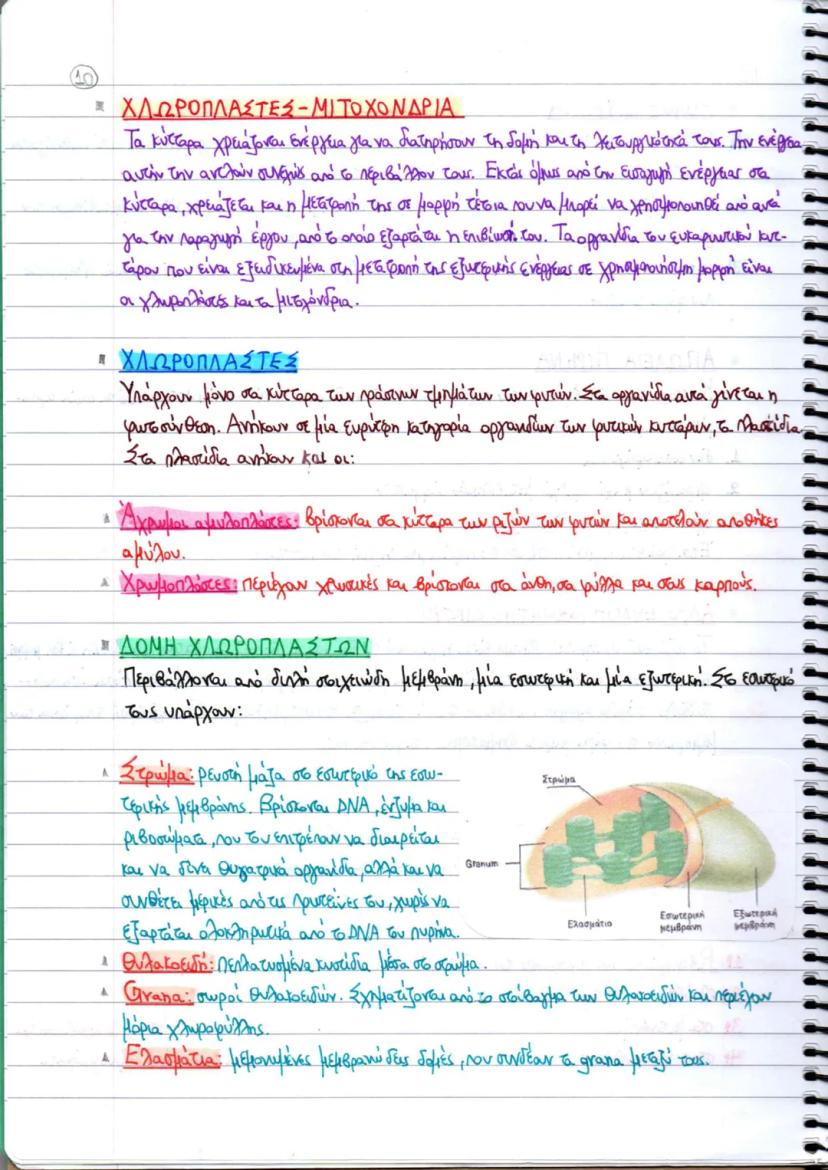 10
ΧΛΩΡΟΠΛΑΣΤΕΣ-ΜΙΤΟΧΟΝΔΡΙΑ
Τα κύτταρα χρειάζονται ενέργεια για να διατηρήσουν τη δομή και τη λειτουργικότητά τους. Την ενέργεια
αυτήν την αντλούν συνεχώς από το περιβάλλον τους. Εκτός όμως από την εισαγωγή ενέργειας στα
κύτταρα, χρειάζεται και η μετατροπή της σε μορφή τέτοια που να μπορεί να χρησιμοποιηθεί από αυτά
για την παραγωγή έργου, από το οποίο εξαρτάται η επιβίωσή του. Τα οργανίδια του ευκαρυωτικού κυτ-
τάρου που είναι εξειδικευμένα στη μετατροπή της εξωτερικής ενέργειας σε χρησιμοποιήσιμη μορφή είναι
οι χλωροπλάστες και τα μιτοχόνδρια.
ΧΛΩΡΟΠΛΑΣΤΕΣ
Υπάρχουν μόνο στα κύτταρα των πράσινων τμημάτων των φυτών. Στα οργανίδια αυτά γίνεται η
φωτοσύνθεση. Ανήκουν σε μία ευρύτερη κατηγορία οργανιδίων των φυτικών κυττάρων, τα πλαστίδια.
Στα πλαστίδια ανήκουν και οι:
Άχρωμοι αμυλοπλάστες: βρίσκονται στα κύτταρα των ριζών των φυτών και αποτελούν αποθήκες
αμύλου.
Χρωμοπλάστες: περιέχουν χρωστικές και βρίσκονται στα άνθη, στα φύλλα και στους καρπούς.
ΔΟΜΗ ΧΛΩΡΟΠΛΑΣΤΩΝ
Περιβάλλονται από διπλή στοιχειώδη μεμβράνη, μία εσωτερική και μία εξωτερική. Στο εσωτερικό
τους υπάρχουν:
Στρώμα: ρευστή μάζα στο εσωτερικό της εσω-
τερικής μεμβράνης. Βρίσκονται DNA, ένζυμα και
ριβοσώματα, που του επιτρέπουν να διαιρείται
και να δίνει θυγατρικά οργανίδια, αλλά και να
συνθέτει μερικές από τις πρωτεΐνες του, χωρίς να
εξαρτάται ολοκληρωτικά από το DNA του πυρήνα.
Στρώμα
Granum
Ελασμάτιο
Εσωτερική
μεμβράνη
Εξωτερική
μεμβράνη
Θυλακοειδή: πεπλατυσμένα κυστίδια μέσα στο στρώμα.
Grana: σωροί θυλακοειδών. Σχηματίζονται από το στοίβαγμα των θυλακοειδών και περιέχουν
μόρια χλωροφύλλης.
Ελασμάτια: μεμονωμένες μεμβρανώδεις δομές, που συνδέουν τα grana μεταξύ τους.